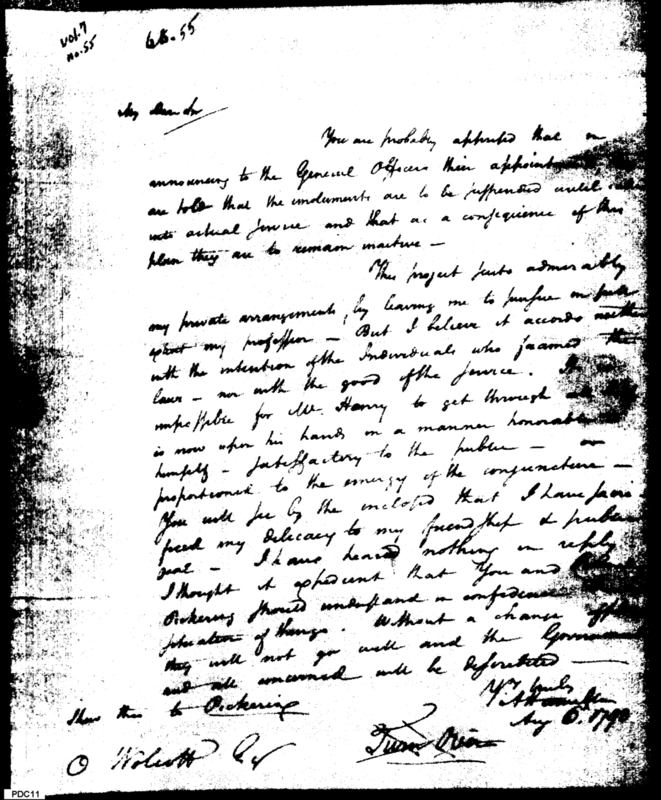 vol. 7
no. 55
65. 55
My Dear Sir
You are probably apprised that in
announcing to the General Officers their appointments
are told that the emoluments are to be suspended until called
into actual service and that as a consequence of this
plan they are to remain inactive —
This project suits admirably
my private arrangements, by leaving me to pursue in full
extent my profession — But I believe it accords neither
with the intention of the Individuals who framed the
laws — nor with the good of the service. It is
impossible for Mr. Henry to get through all
is now upon his hands in a manner honorable
himself — satisfactory to the public — or
proportioned to the energy of the conjuncture —
You will see by the inclosed that I have sacri
ficed my delicacy to my friendship & public
zeal — I have heared nothing in reply
I thought it expedient that You and
Pickering should understand in confidence
situation of things. Without a change of
they will not go well and the Government
and all concerned will be discredited —
Yrs truly
A Hamilton
Aug 6. 1798
Show this to Pickering
O Wolcott Esq
Turn Over
PDC11